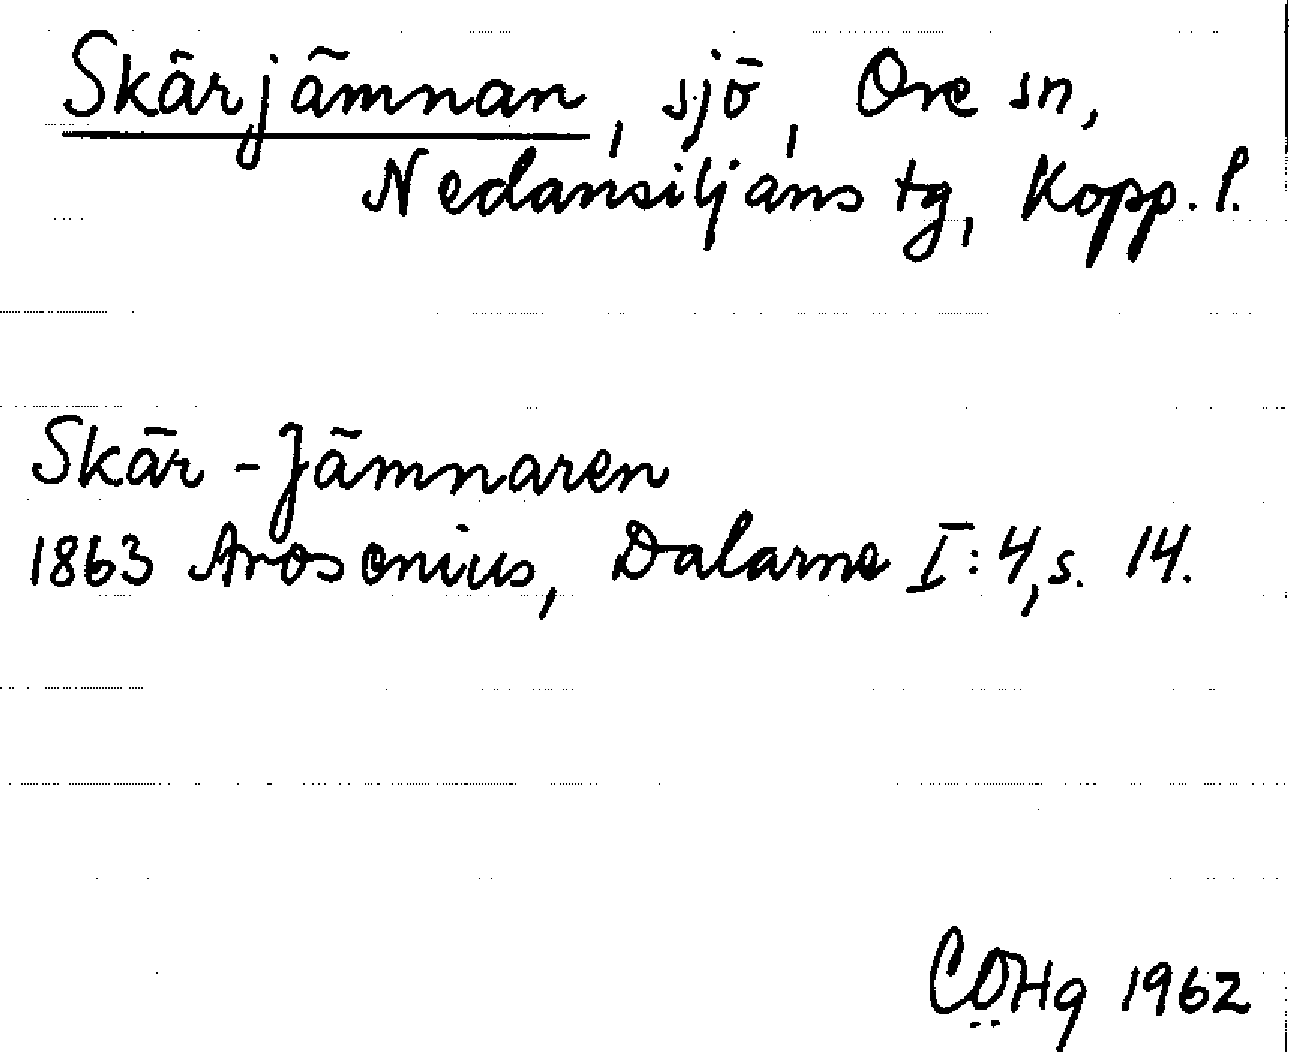 Skärjämnan, sjö, Ore sn,
Nedansiljans tg, Kopp. l.
Skär-Jämnaren
1863 Arosenius, Dalarne I:4, s. 14.
COHg 1962